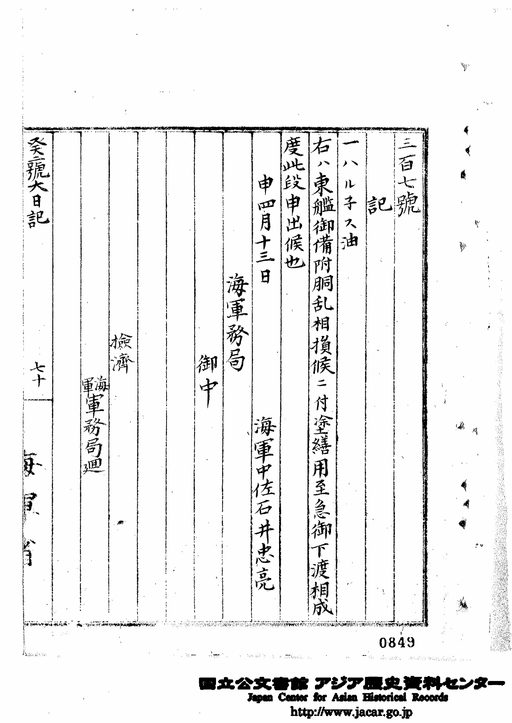 三百七號
記
一ハル子ス油
右ハ東艦御備附胴乱相損候ニ付塗繕用至急御下渡相成
度此段申出候也
申四月十三日
海軍中佐石井忠亮
海軍務局
御中
検済
海軍軍務局廻
癸號大日記
七十
海軍省
0849
国立公文書館 アジア歴史資料センター
Japan Center for Asian Historical Records
http://www.jacar.go.jp